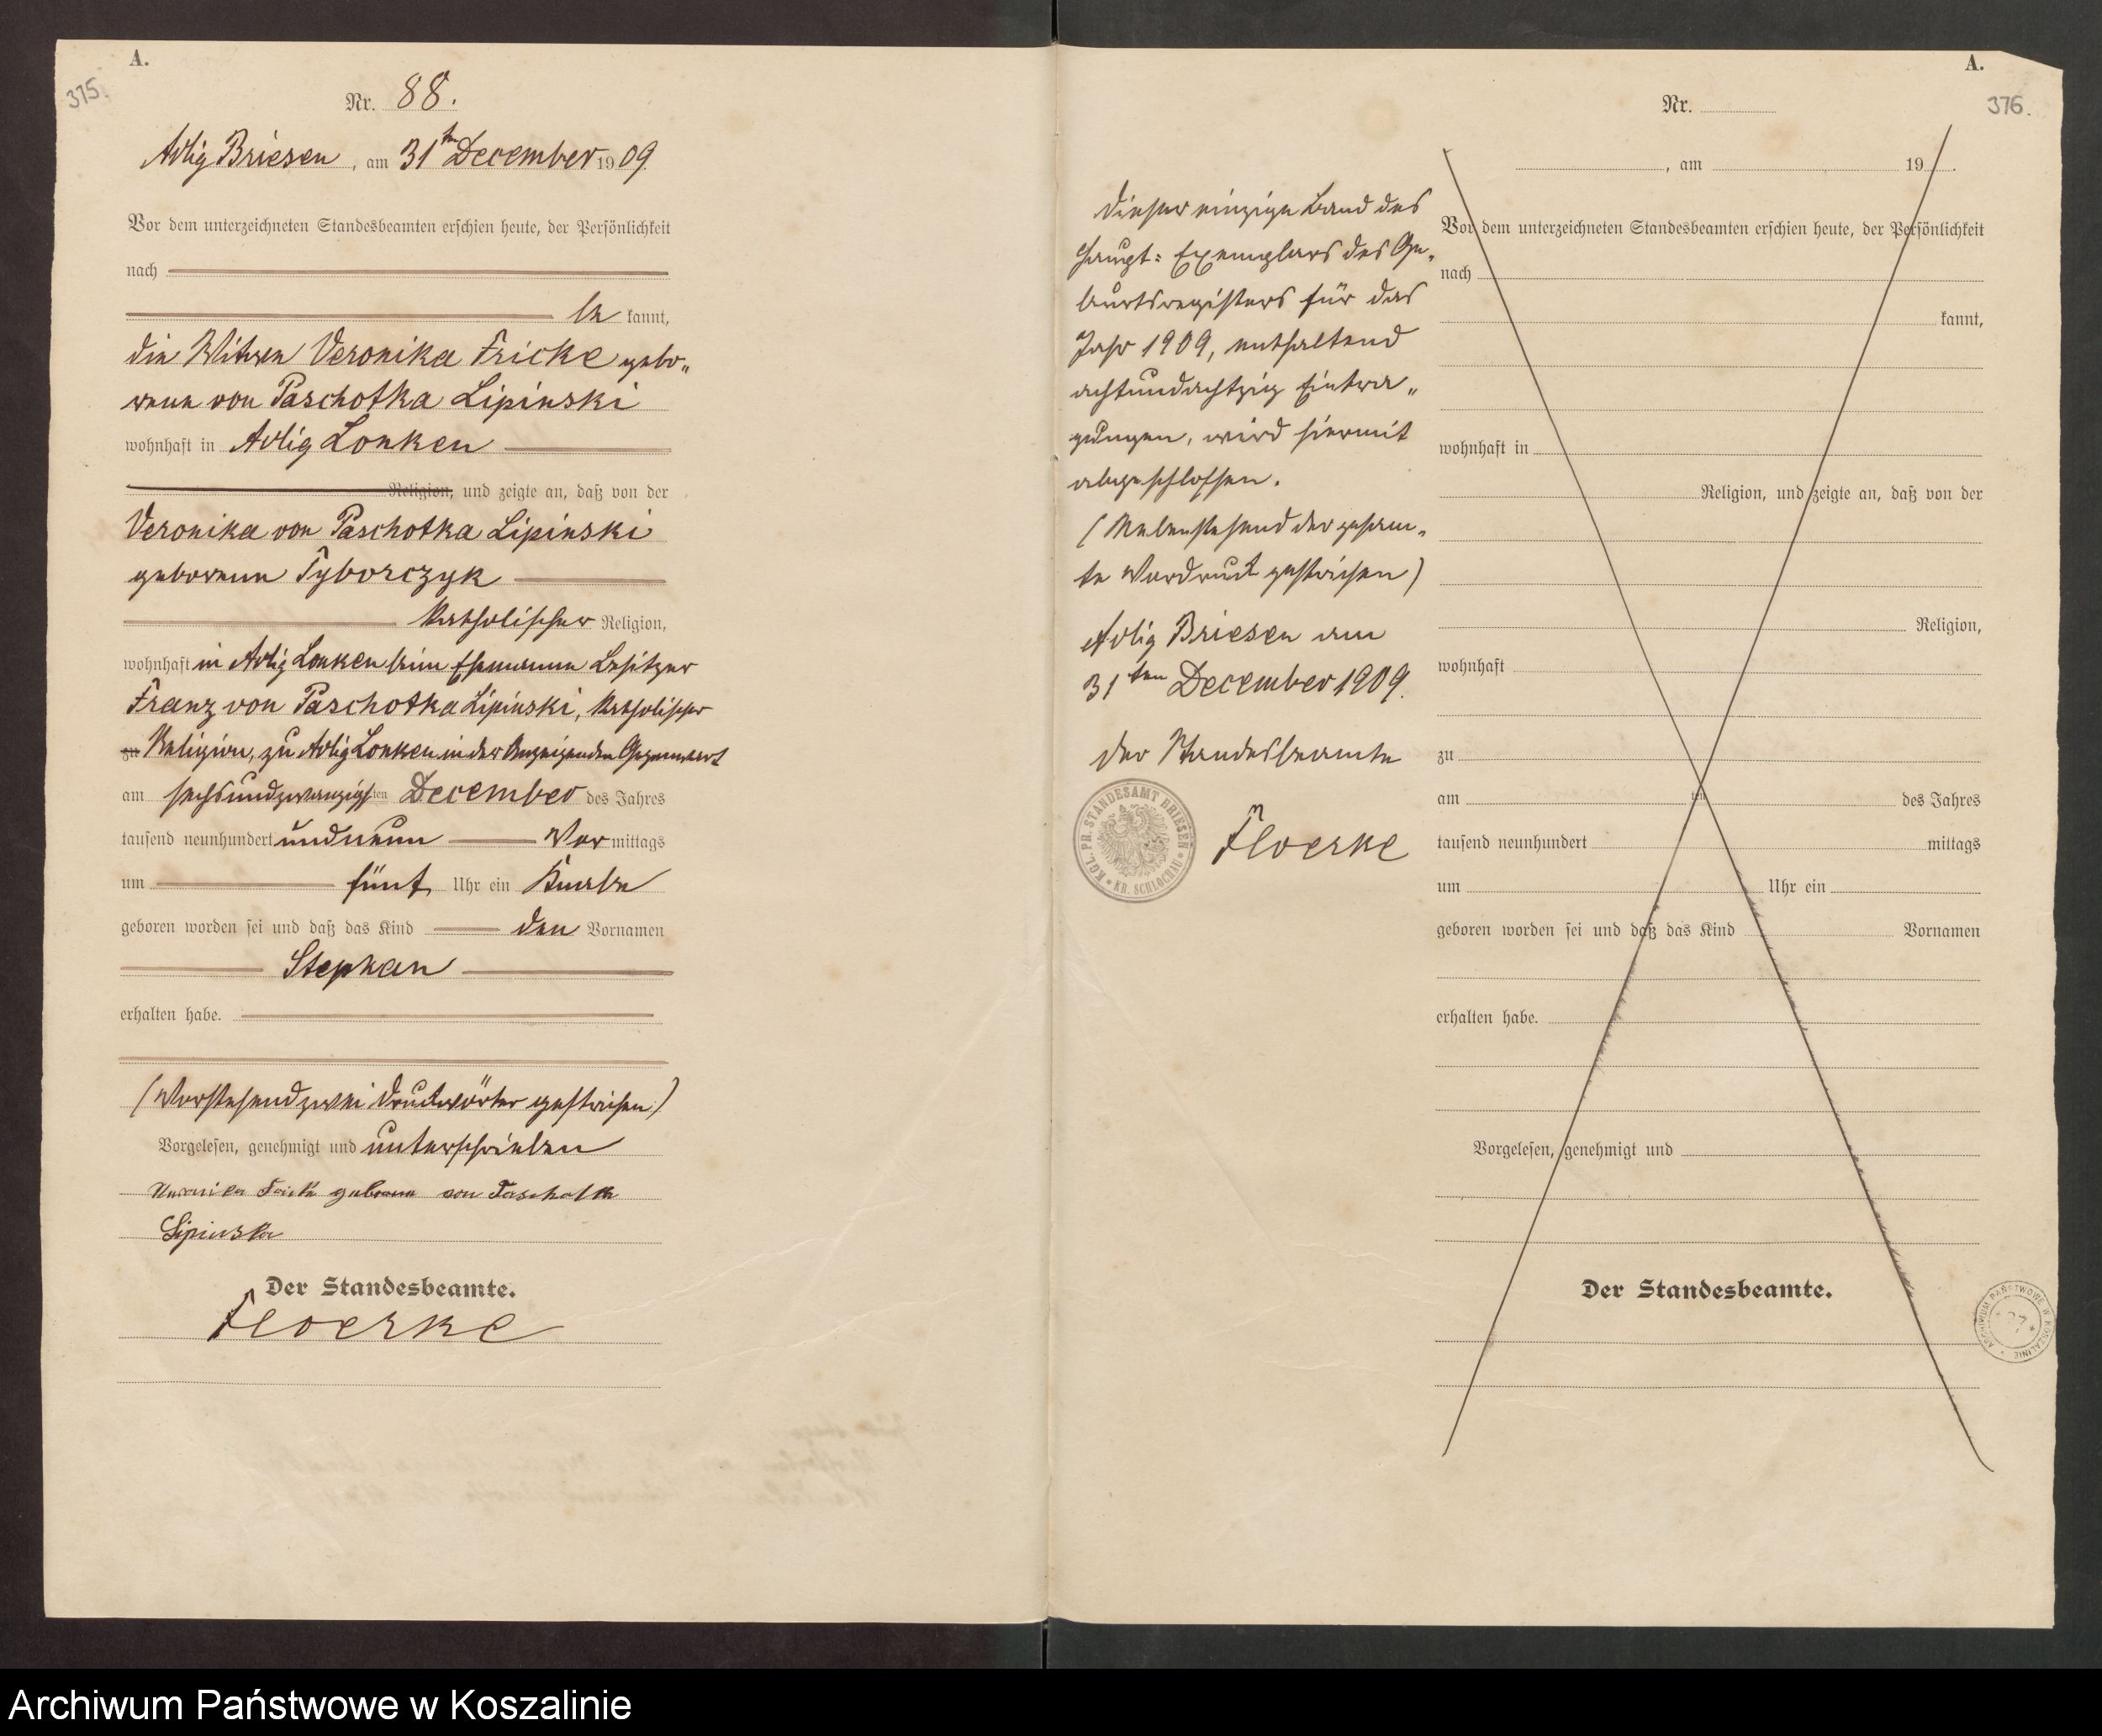 A.
375.
Nr. 88.
Adlig Briesen, am 31ten December 1909.
Vor dem unterzeichneten Standesbeamten erschien heute, der Persönlichkeit
nach
be kannt,
die Witwe Veronika Fricke gebo„
rene von Paschotka Lipinski
wohnhaft in Adlig Lonken
Religion, und zeigte an, daß von der
Veronika von Paschotka Lipinski
geborene Tyborczyk
katholischer Religion,
wohnhaft in Adlig Lonken beim Ehemanne Besitzer
Franz von Paschotka Lipinski, katholischer
zu Religion, zu Adlig Lonken in der Anzeigenden Gegenwart
am sechsundzwanzigsten December des Jahres
tausend neunhundert und neun Vor mittags
um fünf Uhr ein Knabe
geboren worden sei und daß das Kind den Vornamen
Stephan
erhalten habe.
(Vorstehend zwei Druckwörter gestrichen)
Vorgelesen, genehmigt und unterschrieben
Veronika Frick geborene von Paschotk
Lipinska
Der Standesbeamte.
Floerke
A.
376.
Dieser einzige Band des
Haupt= Exemplars des Ge„
burtsregisters für das
Jahr 1909, enthaltend
achtundachtzig Eintra„
gungen, wird hiermit
abgeschlossen.
(Nebenstehend der gesam„
te Vordruck gestrichen)
Adlig Briesen am
31ten December 1909.
Der Standesbeamte
Floerke
KGL. PR. STANDESAMT BRIESEN
KR. SCHLOCHAU
Nr.
, am 19 .
Vor dem unterzeichneten Standesbeamten erschien heute, der Persönlichkeit
nach
kannt,
wohnhaft in
Religion, und zeigte an, daß von der
Religion,
wohnhaft
zu
am ten des Jahres
tausend neunhundert mittags
um Uhr ein
geboren worden sei und daß das Kind Vornamen
erhalten habe.
Vorgelesen, genehmigt und
Der Standesbeamte.
ARCHIWUM PAŃSTWOWE W KOSZALINIE
Archiwum Państwowe w Koszalinie